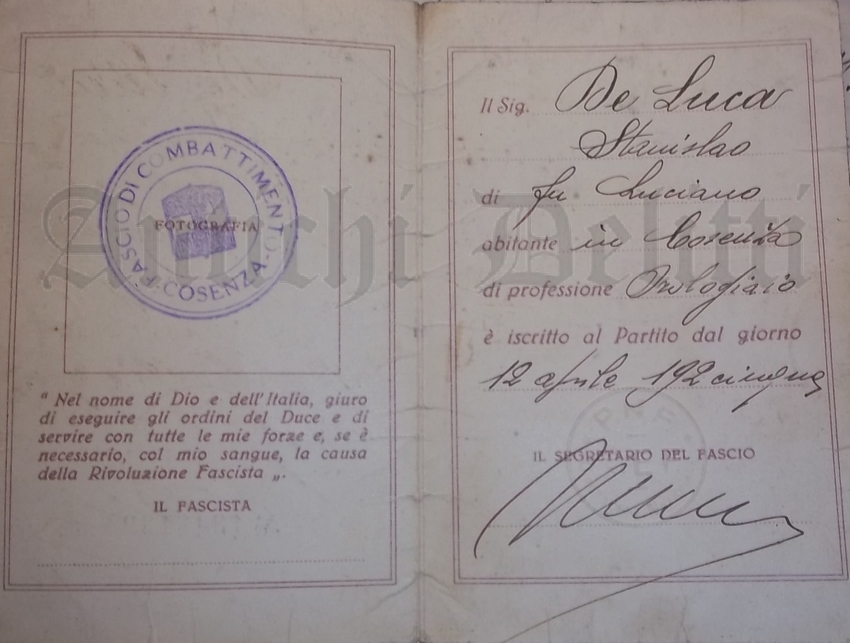 FASCIO DI COMBATTIMENTO
COSENZA
FOTOGRAFIA
" Nel nome di Dio e dell'Italia, giuro
di eseguire gli ordini del Duce e di
servire con tutte le mie forze e, se è
necessario, col mio sangue, la causa
della Rivoluzione Fascista „.
IL FASCISTA
Il Sig. De Luca
Stanislao
di fu Luciano
abitante in Cosenza
di professione Orologiaio
è iscritto al Partito dal giorno
12 aprile 192cinque
P.N.F.
IL SEGRETARIO DEL FASCIO
Antichi Delitti